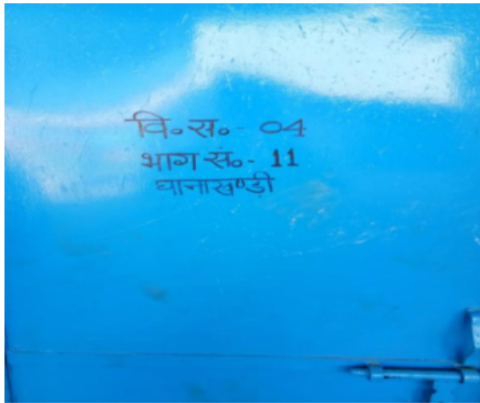 वि॰स॰- 04
भाग सं॰- 11
धानाखण्डी